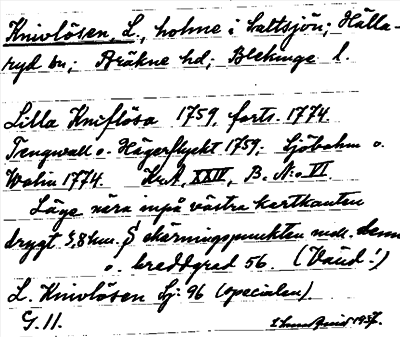 Knivlösen, L., holme i saltsjön; Hälla-
ryd sn; Bräkne hd; Blekinge l.
Lilla Kniflösa 1759, forts. 1774
Tengwall o. Hägerflycht 1759; Sjöbohm o.
Wolin 1774. KrA XXIV, B. N:o VI
Läge nära inpå västra kartkanten
drygt 3,8 km. S skärningspunkten med denna
o. breddgrad 56. (Vänd!)
L. Knivlösen Sj: 96 (specialen)
G. 11.
1957.